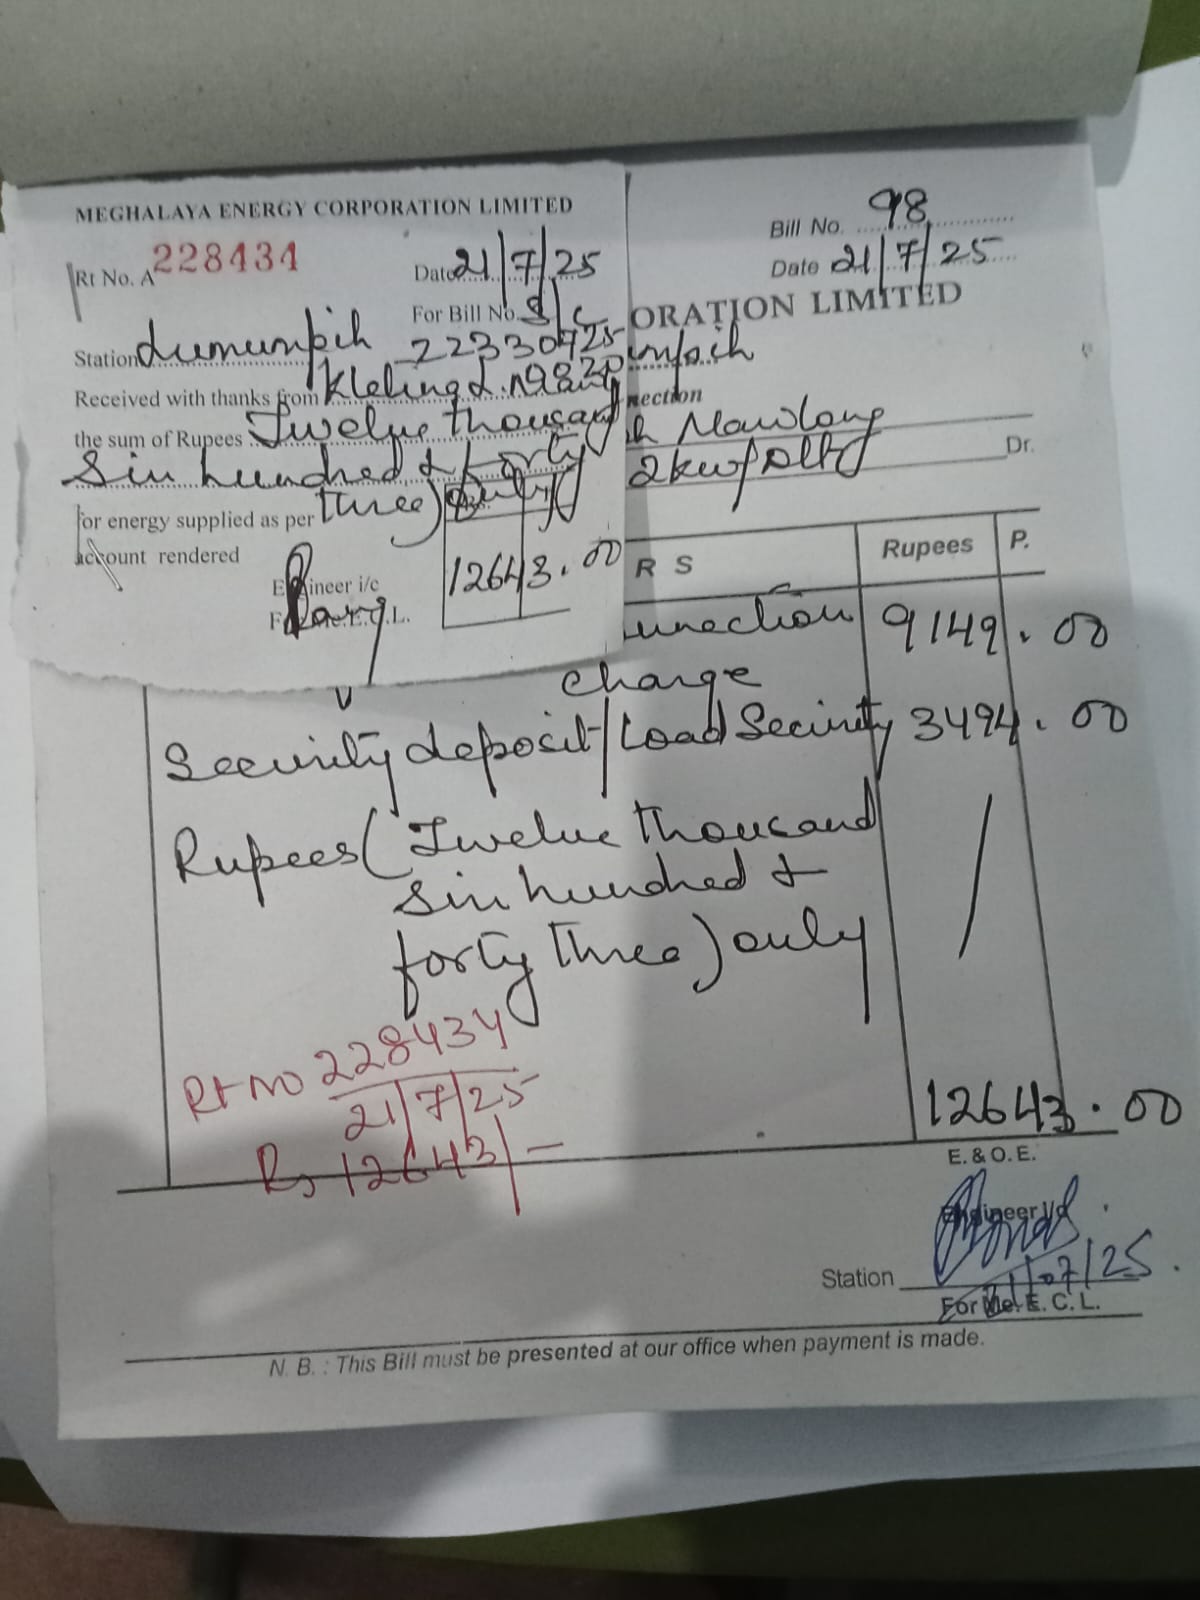 MEGHALAYA ENERGY CORPORATION LIMITED
Rt No. A 228434
Date 21/7/25
For Bill No. S/C
Station Lumumpih 22330725
Received with thanks from
the sum of Rupees Twelve thousand
Sin hundred & forty
for energy supplied as per three) only
account rendered
12643.00
Engineer i/c
For Me.E.C.L.
Bill No. 98
Date 21/7/25
ORATION LIMITED
umpih
nection
h Mawlong
2kw/ Dr.
R S Rupees P.
unection 9149.00
charge
Security deposit/Load Security 3494.00
Rupees (Twelve thousand
Sin hundred &
forty three) only
Rt NO 228434
21/7/25
Rs 12643/-
12643.00
E. & O. E.
Engineer I/c
Station 21/07/25
For Me. E. C. L.
N. B. : This Bill must be presented at our office when payment is made.